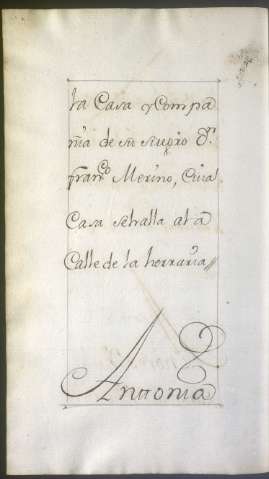 la Casa y compa
ñia de su suegro Dn.
Franco Merino, Cuia
Casa sehalla al a
Calle de la herraria//
Antonia